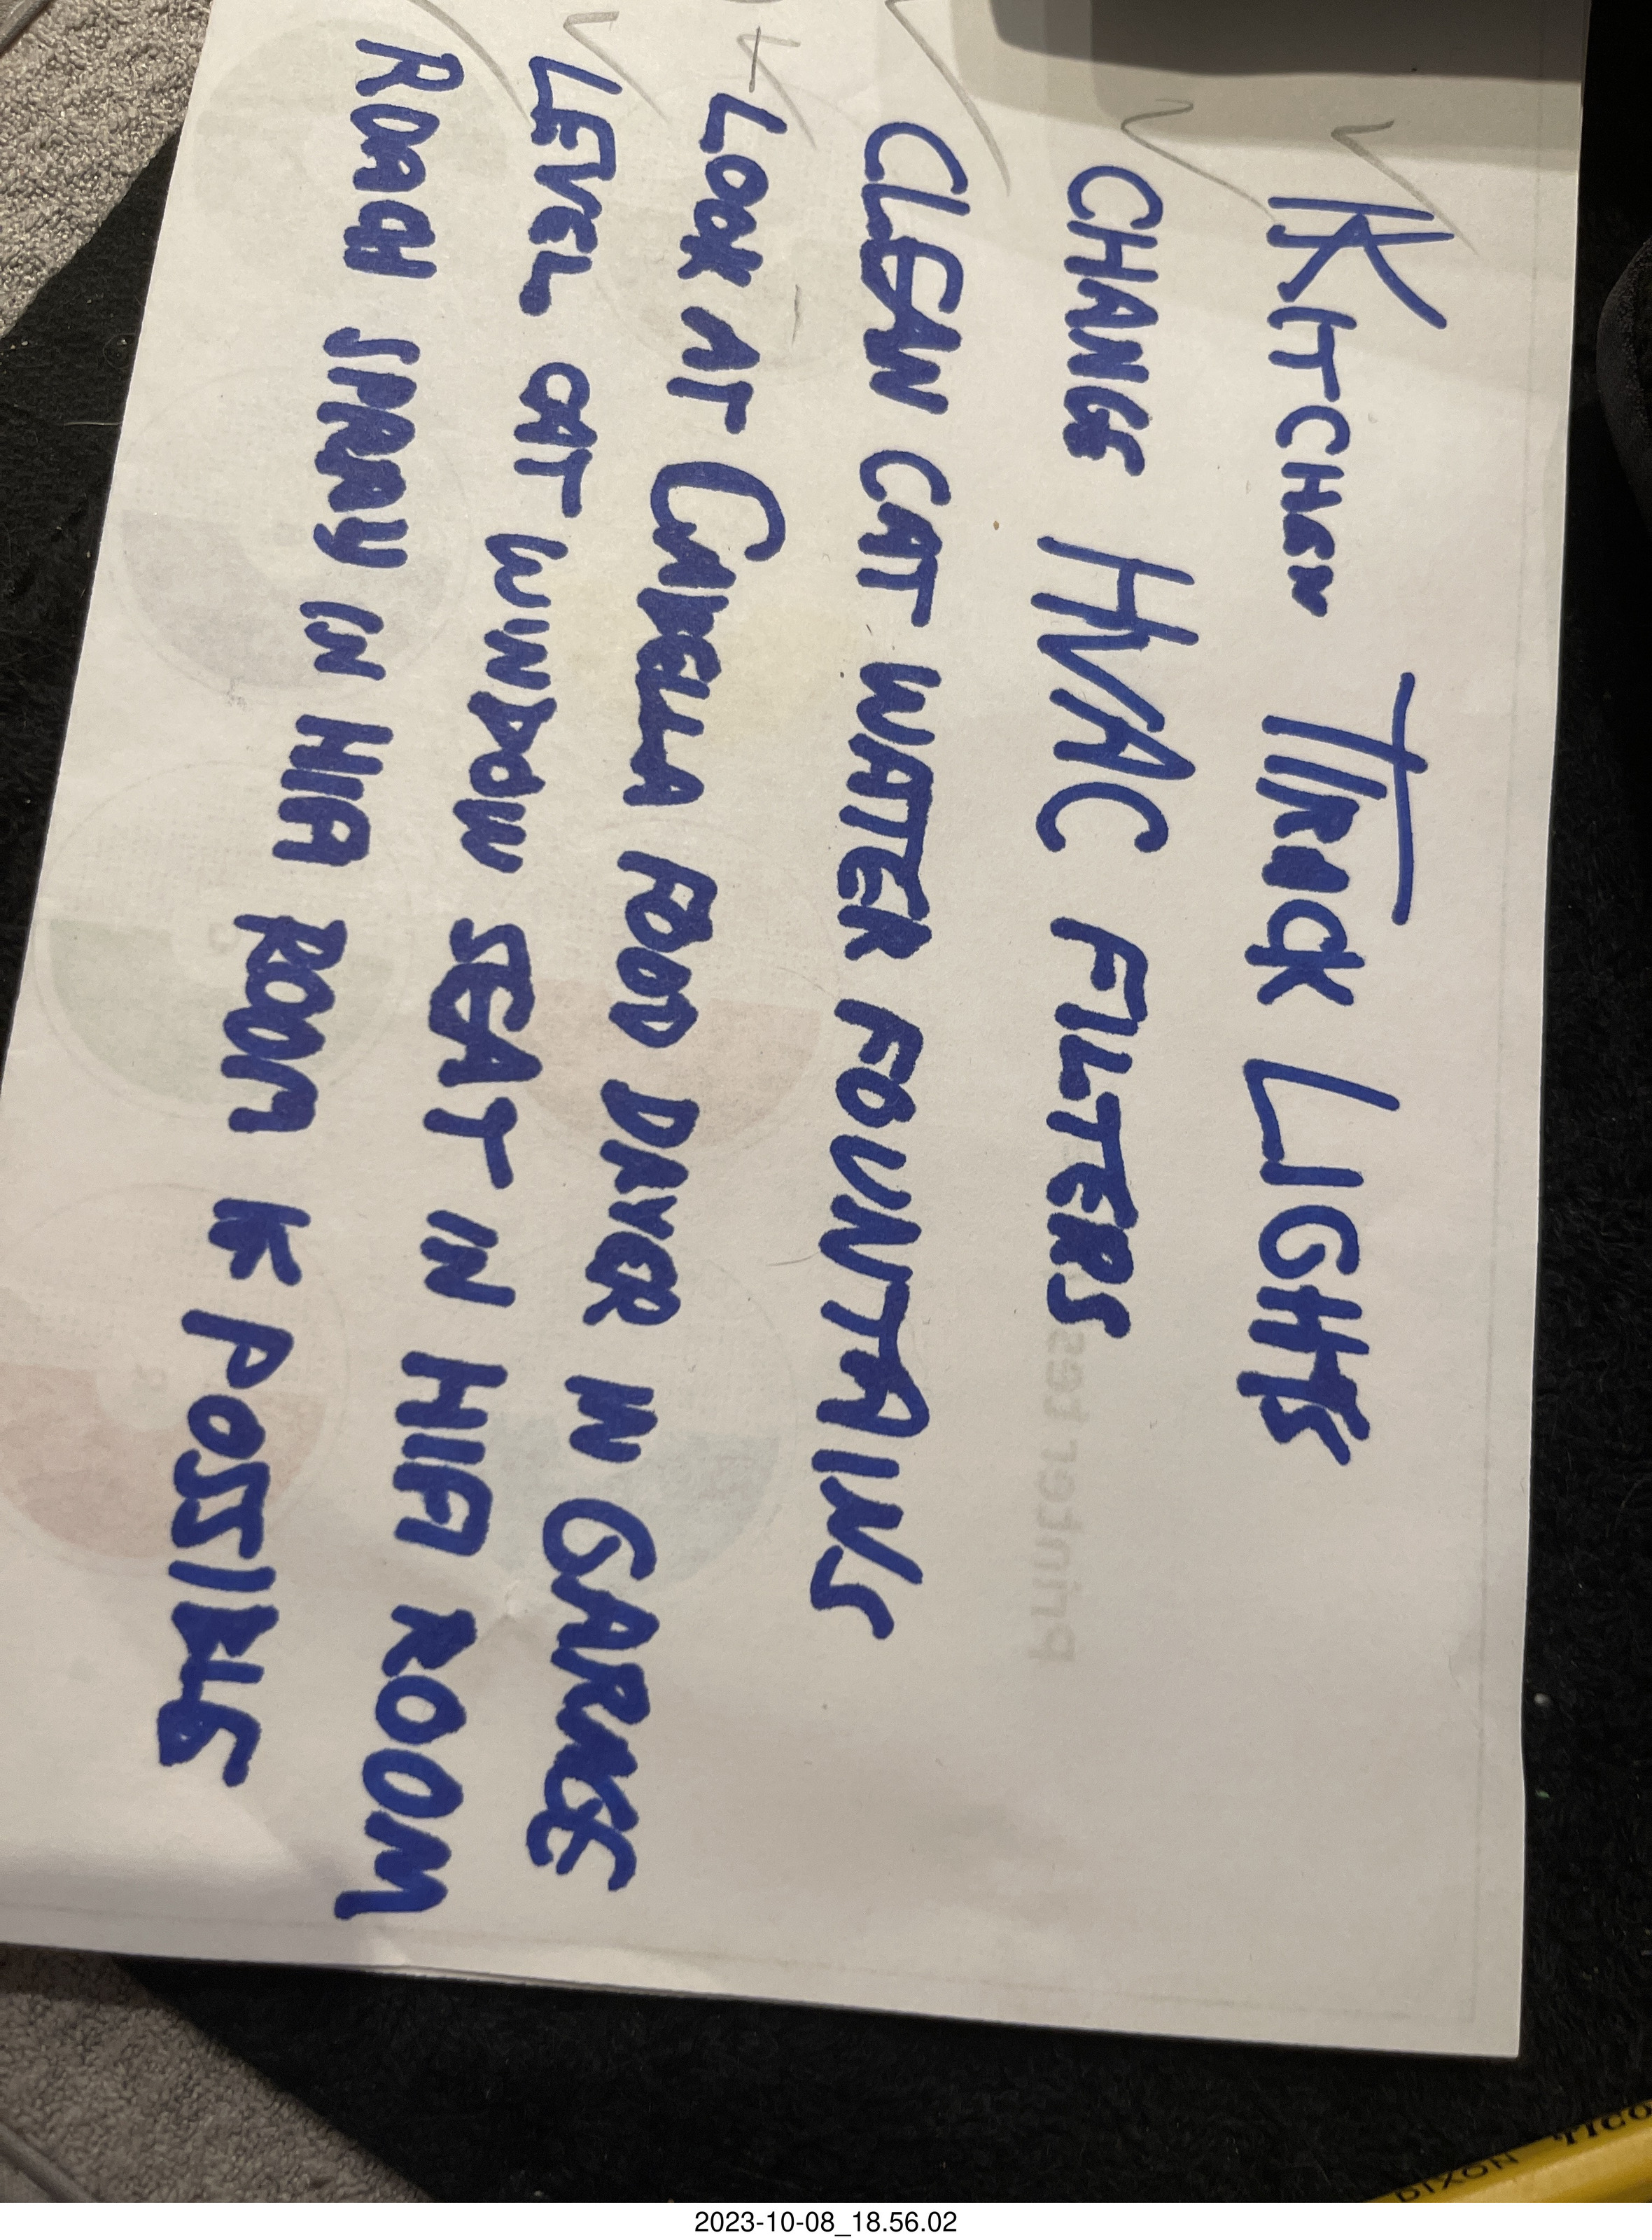 KITCHEN TRACK LIGHTS
CHANGE HVAC FILTERS
CLEAN CAT WATER FOUNTAINS
LOOK AT CABELLA FOOD DRYER IN GARAGE
LEVEL CAT WINDOW SEAT IN HIFI ROOM
ROACH SPRAY IN HIFI ROOM IF POSSIBLE
Printer tes
DIXON TICO
2023-10-08_18.56.02